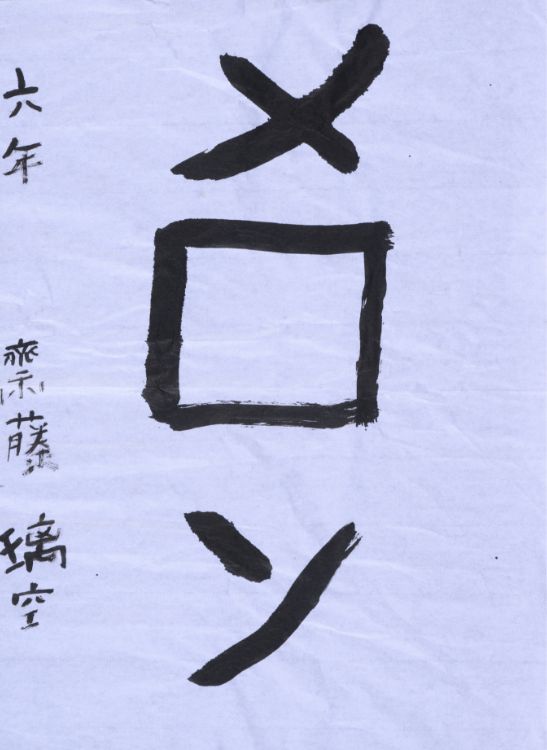 メロン
六年 齋藤 璃空